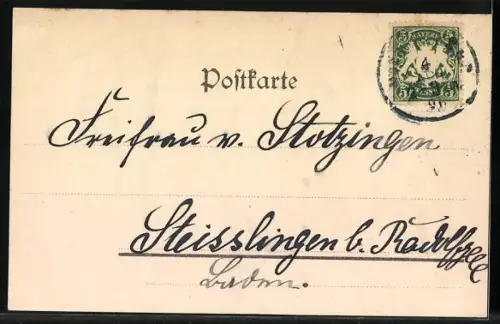 BAYERN
Postkarte
Freifrau v. Stotzingen
Steisslingen b. Radolfzell
Baden.